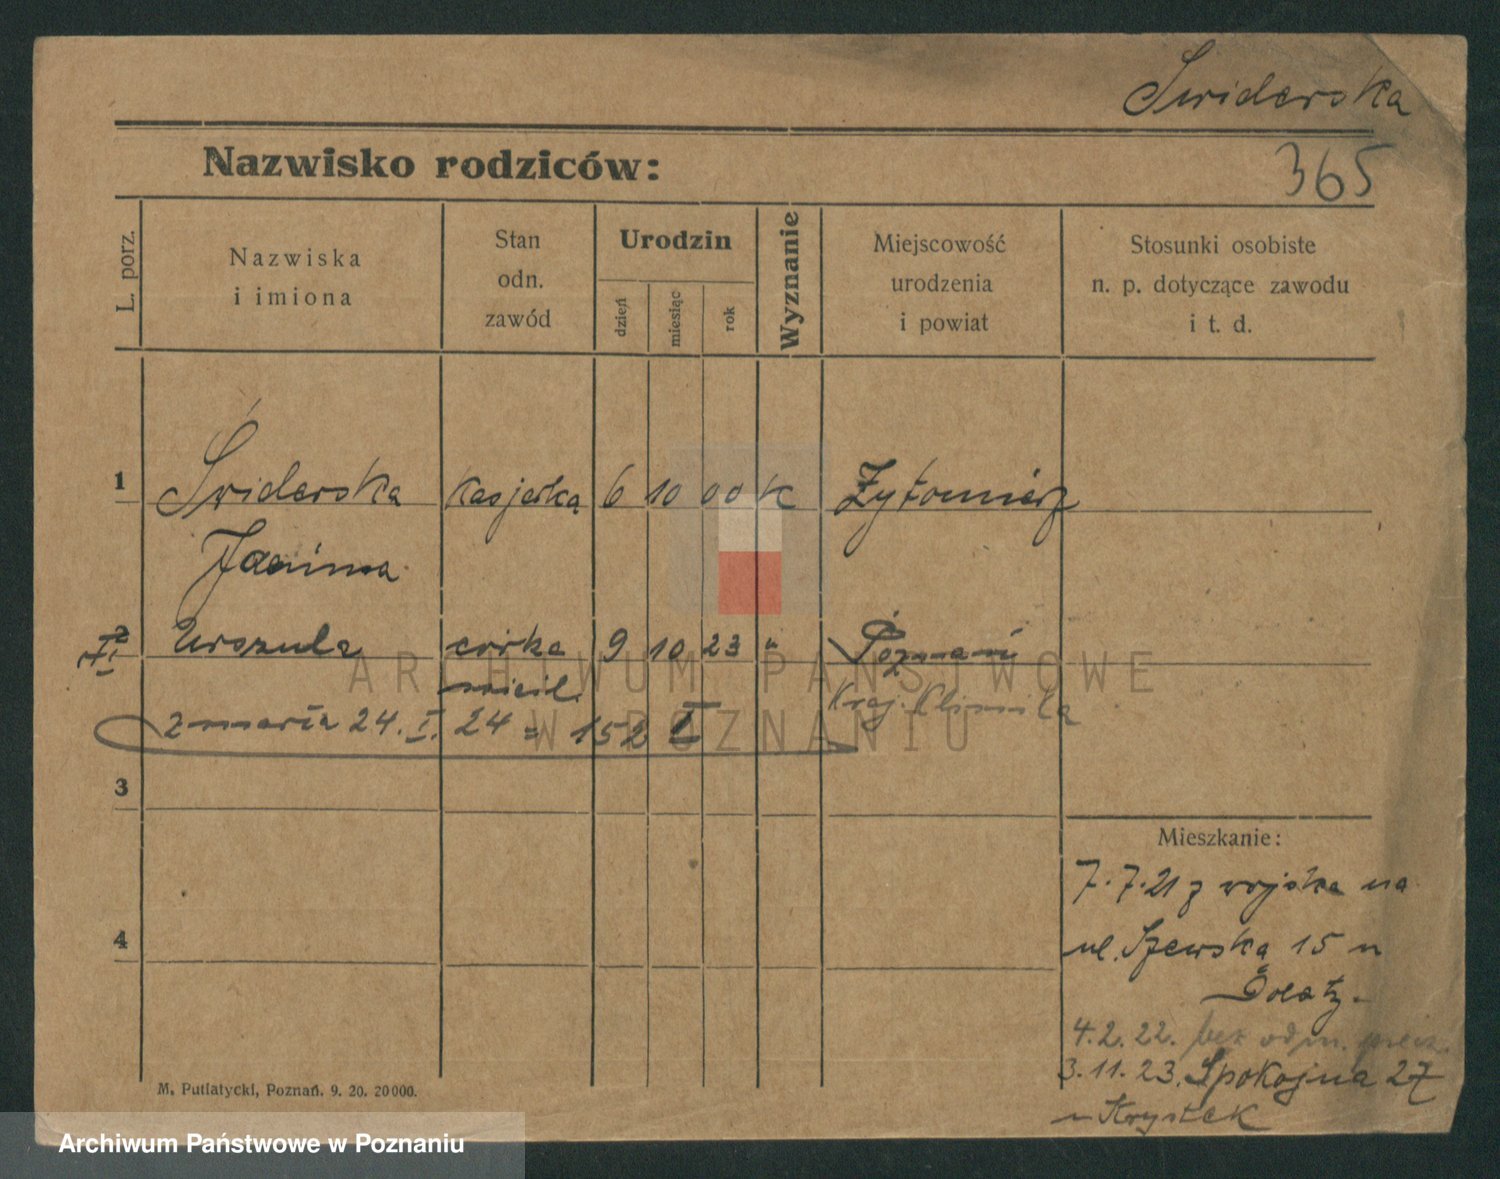 Swiderska
Nazwisko rodziców:
365
L. porz.
Nazwiska
i imiona
Stan
odn.
zawód
Urodzin
dzień
miesiąc
rok
Wyznanie
Miejscowość
urodzenia
i powiat
Stosunki osobiste
n. p. dotyczące zawodu
i t. d.
1 Świderska kasjerka 6 10 00 K Żytomierz
Janina
2 Urszula córka 9 10 23 " Poznań
Kraj. Klinika
zmarła 24. I. 24 = 152 I
3
4
Mieszkanie:
7.7.21 z wojska na
ul. Szewska 15 u
4.2.22. bez odm.
3.11.23. Spokojna 27
u Krystek
M. Putiatycki, Poznań. 9. 20. 20000.
ARCHIWUM PAŃSTWOWE
W POZNANIU
Archiwum Państwowe w Poznaniu